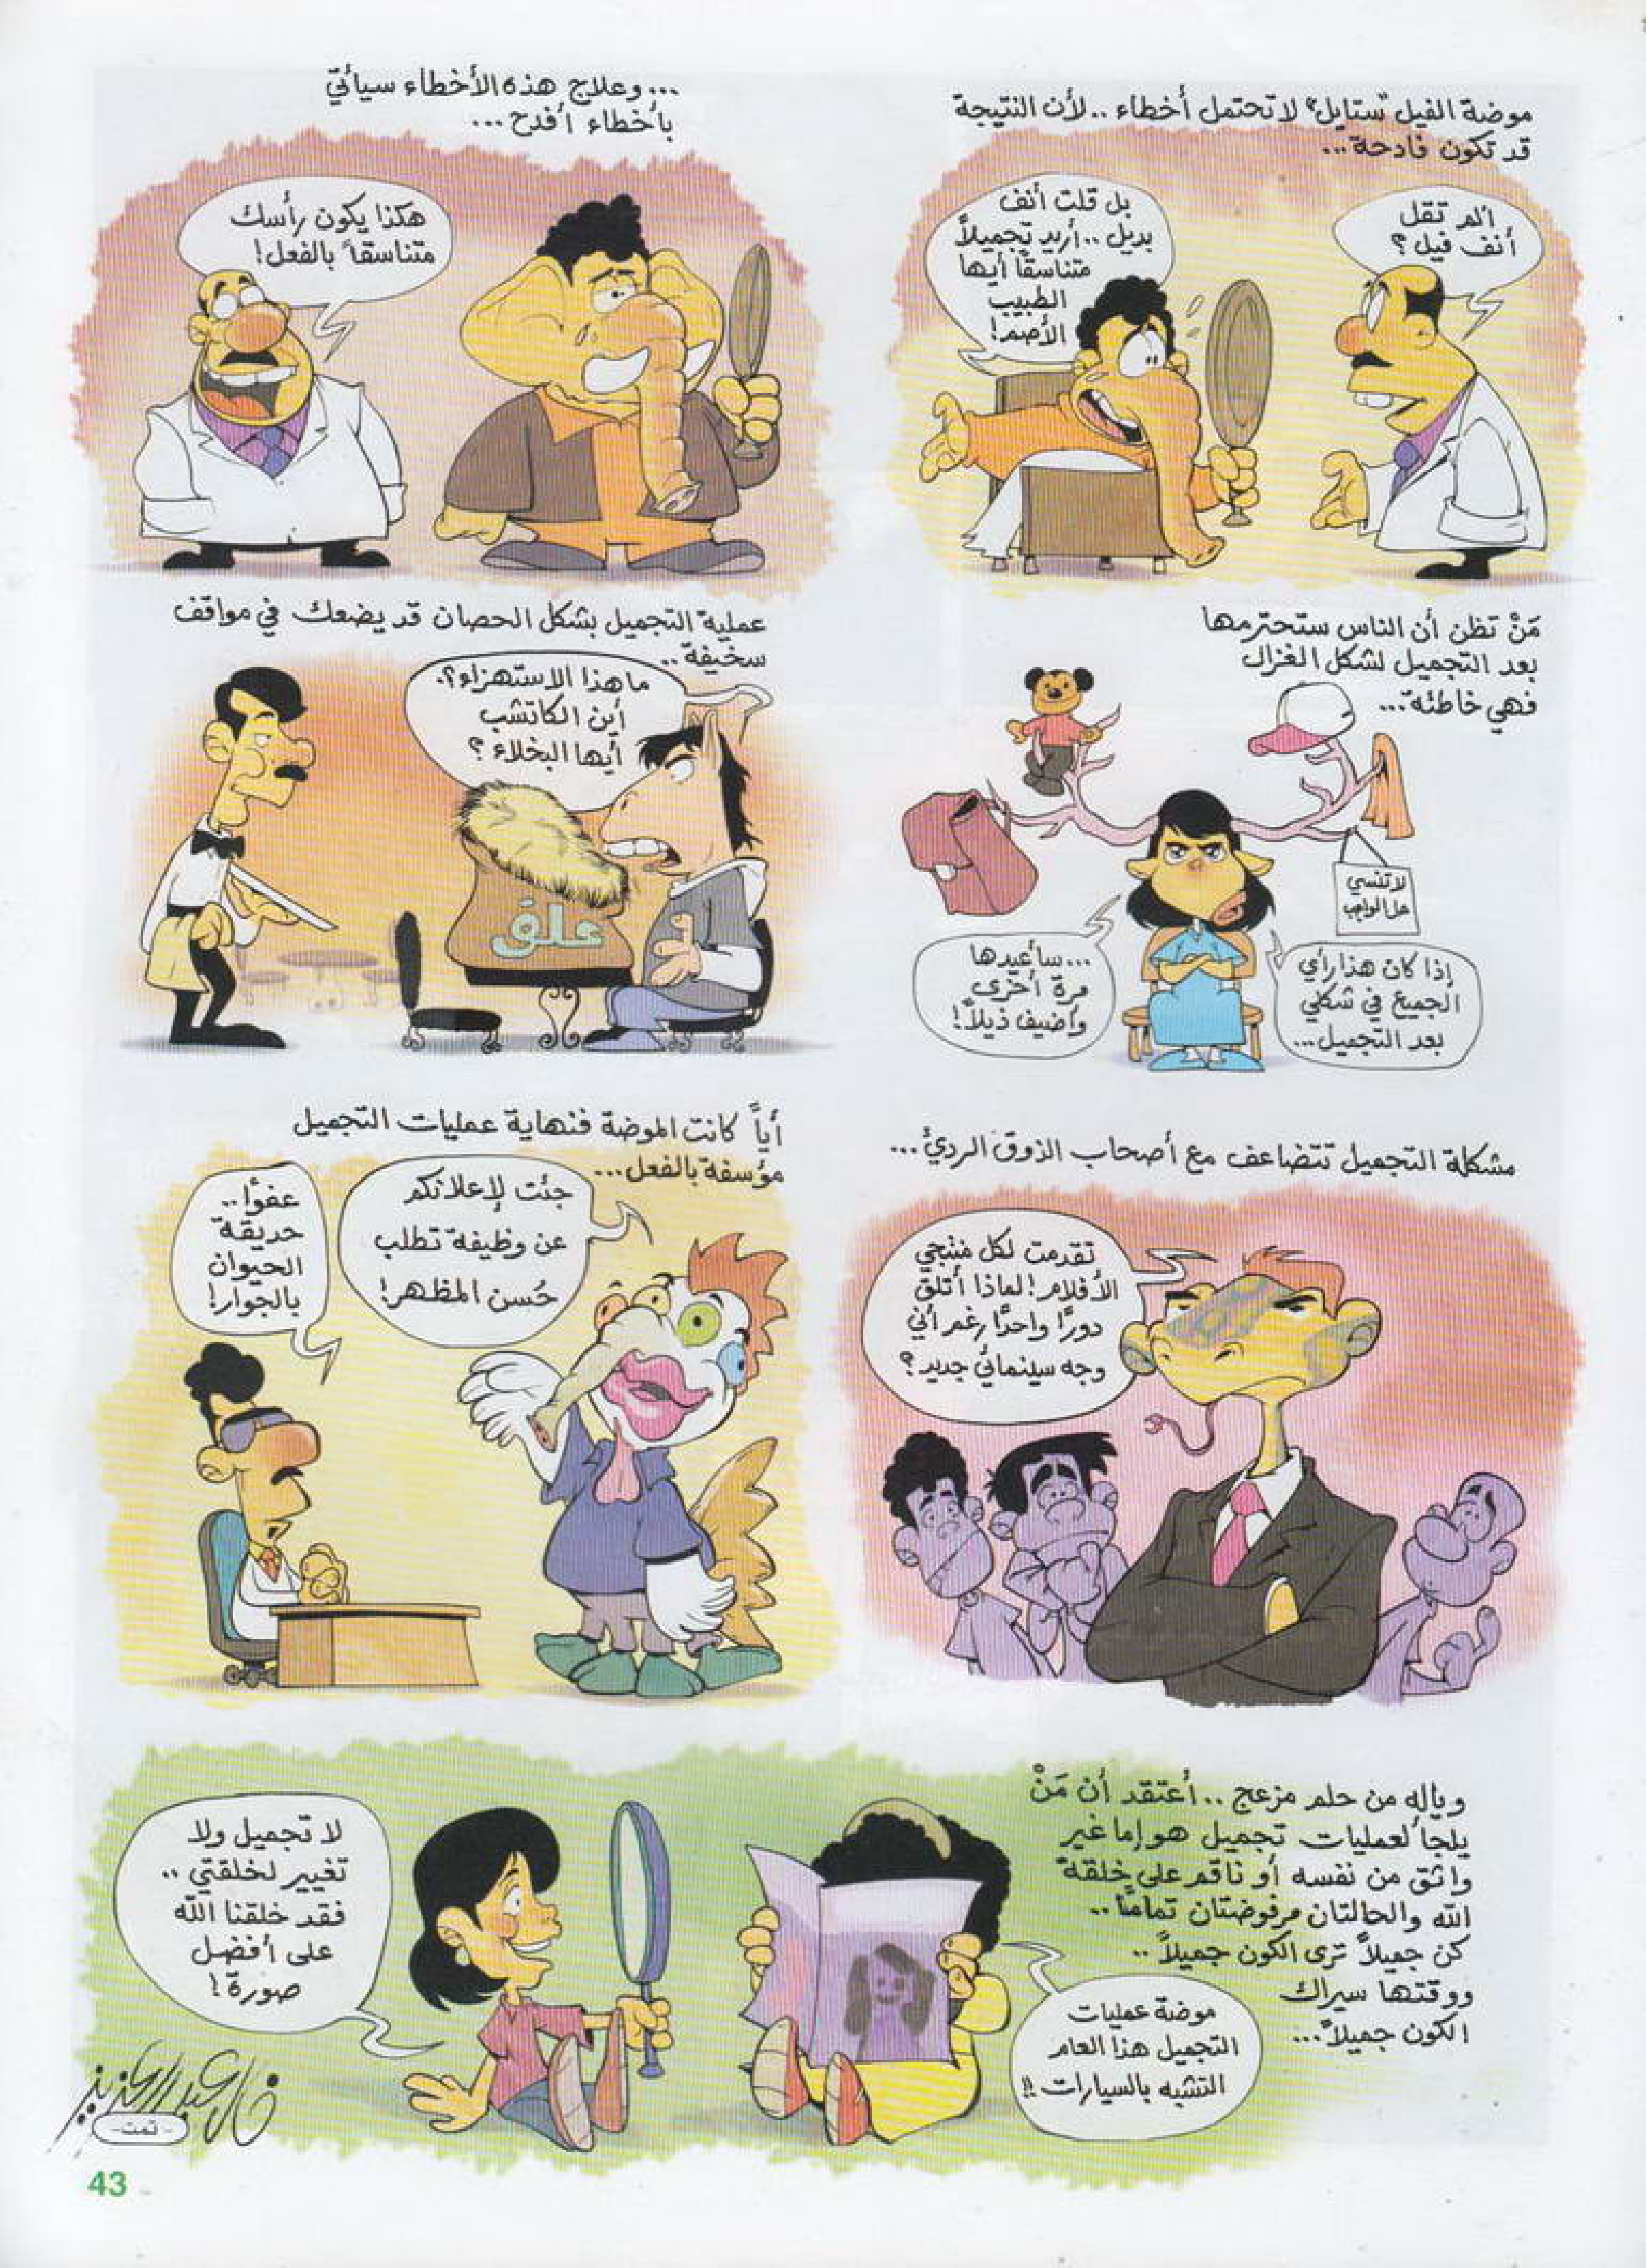 موضة الفيل "ستايل" لا تحتمل أخطاء .. لأن النتيجة
قد تكون فادحة...
ألم تقل
أنف فيل ؟
بل قلت أنف
بديل .. أريد تجميلاً
متناسقاً أيها
الطبيب
الأصم!
...وعلاج هذه الأخطاء سيأتي
بأخطاء أفدح ...
هكذا يكون رأسك
متناسقاً بالفعل!
مَنْ تظن أن الناس ستحترمها
بعد التجميل لشكل الغزال
فهي خاطئة...
لا تنسي
حل الواجب
إذا كان هذا رأي
الجميع في شكلي
بعد التجميل...
...سأعيدها
مرة أخرى
وأضيف ذيلاً!
عملية التجميل بشكل الحصان قد يضعك في مواقف
سخيفة ..
ما هذا الاستهزاء؟.
أين الكاتشب
أيها البخلاء ؟
علف
مشكلة التجميل تتضاعف مع أصحاب الذوق الرديْ...
تقدمت لكل منتجي
الأفلام! لماذا أتلق
دورًا واحدًا رغم أني
وجه سينمائي جديد ؟
أياً كانت الموضة فنهاية عمليات التجميل
مؤسفة بالفعل...
جئت لإعلانكم
عن وظيفة تطلب
حُسن المظهر!
عفوًا ..
حديقة
الحيوان
بالجوار!
وياله من حلم مزعج .. أعتقد أن مَنْ
يلجأ لعمليات تجميل هو إما غير
واثق من نفسه أو ناقم على خلقة
الله والحالتان مرفوضتان تماماً ..
كن جميلاً ترى الكون جميلاً ..
ووقتها سيراك
الكون جميلاً...
موضة عمليات
التجميل هذا العام
التشبه بالسيارات !!
لا تجميل ولا
تغيير لخلقتي ..
فقد خلقنا الله
على أفضل
صورة!
خالد عبدالعزيز
- تمت -
43